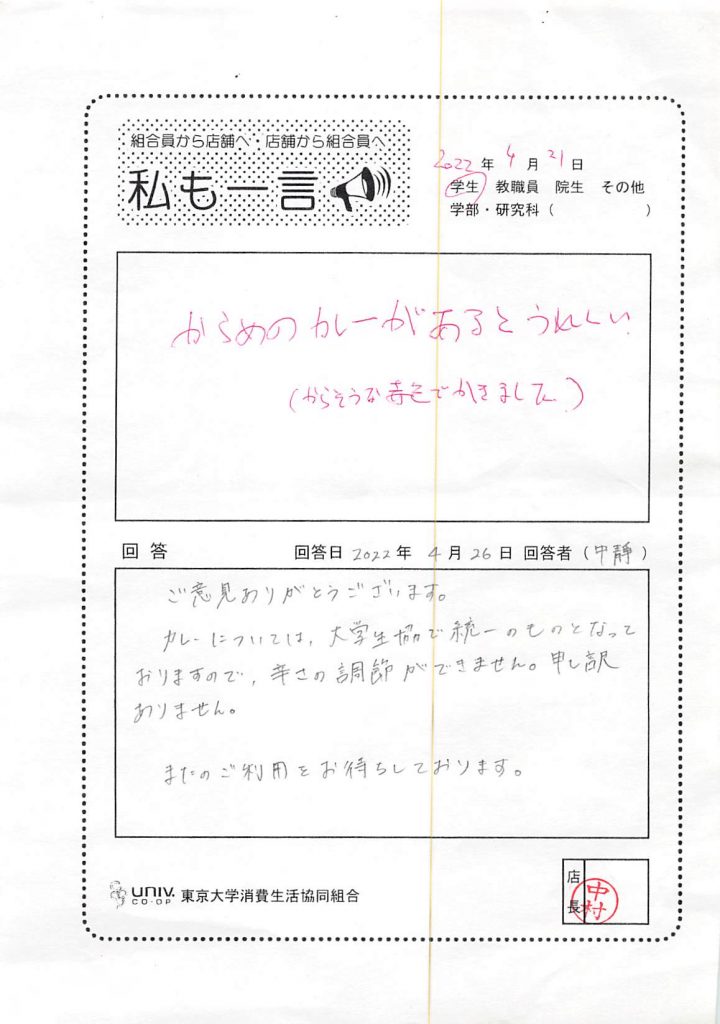 組合員から店舗へ・店舗から組合員へ
私も一言
2022年 4月 21日
学生 教職員 院生 その他
学部・研究科（ ）
からめのカレーがあるとうれしい
(からそうな 色でかきました。)
回答 回答日 2022年 4月 26日 回答者（中靜）
ご意見ありがとうございます。
カレーについては、大学生協で統一のものとなって
おりますので、辛さの調節ができません。申し訳
ありません。
またのご利用をお待ちしております。
UNIV. CO-OP 東京大学消費生活協同組合
店長 中村